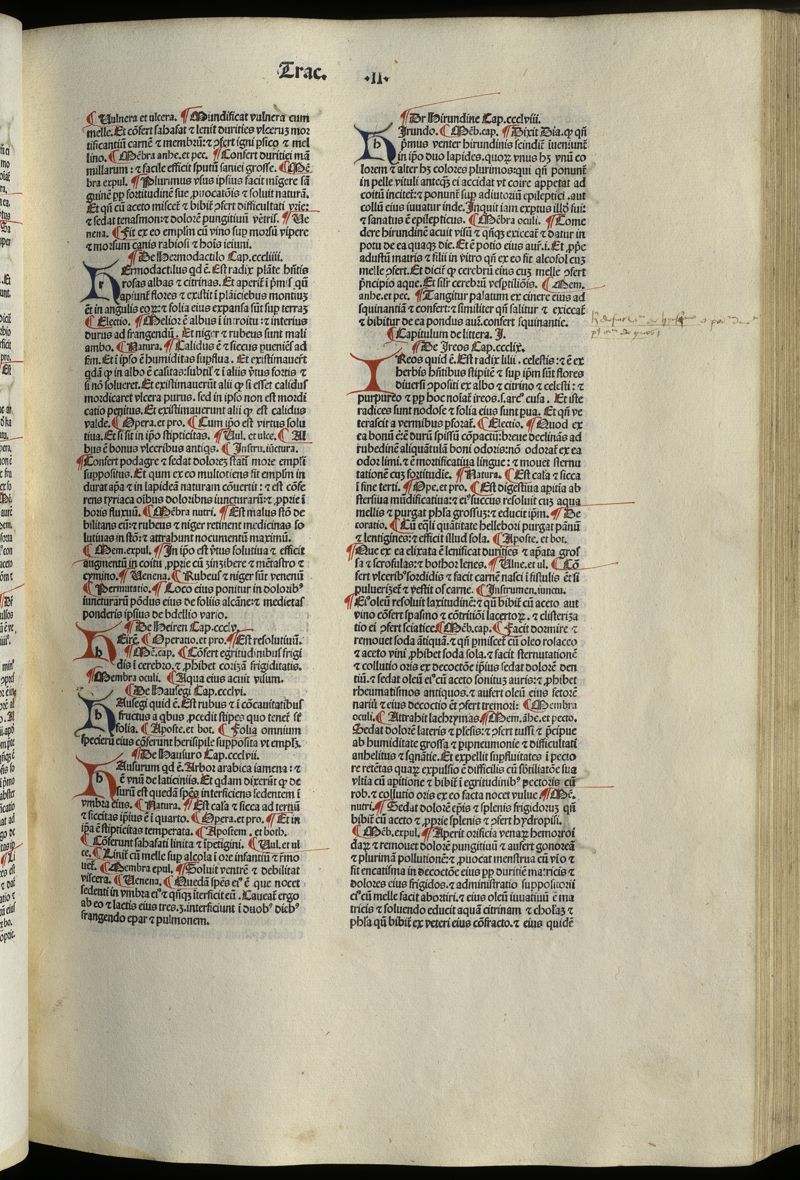 Trac. .II.
Vulnera et ulcera. Mundificat vulnera cum
melle. Et cōfert sahafat et lenit durities vlceruꝫ mor
tificantiū carnē et membrū: et ꝯfert igni psico et mel
lino. Mēbra anhe. et pec. Confert duritiei mā
millarum: et facile efficit sputū saniei grosse. Mē
bra expul. Plurimus vsus ipsius facit migere sā
guinē ꝓp sortitudinē sue ꝓuocatōis et soluit naturā.
Et qn̄ cū aceto miscet̄ et bibit̄ ꝯfert difficultati vrie:
et sedat tenasmon: et dolorē pungitiuū vētris. Ve
nena. Fit ex eo emplm̄ cū vino sup morsū vipere
et morsum canis rabiosi et hois ieiuni.
De Hermodactilo Cap. cccliiii.
Ermodactilus qd ē. Est radix plāte hn̄tis
rosas albas et citrinas. Et aperit̄ i pmis qn̄
apiunt̄ flores et existit i plāiciebus montiuꝫ
et in angulis eorꝝ: et folia eius expansa sūt sup terraꝫ
Electio. Melior ē albus i introitu: et interius
durus ad frangendū. Et niger et rubeus sunt mali
ambo. Natura. Calidus ē et siccus pueniēs ad
s̄m. Et i ipso ē humiditas supflua. Et existimauert̄
qdā ꝙ in albo ē casitas: subtil' et i aliis v̄tus fortis et
si nō solueret. Et existimauerūt alii ꝙ si esset calidus
mordicaret vlcera purus. sed in ipso non est mordi
catio penitus. Et existimauerunt alii ꝙ est calidus
valde. Opera. et pro. Cum ipo est virtus solu
tiua. Et si sit in ipo stipticitas. Vul. et ulce. Al
bus ē bonus vlceribus antiqs. Instru. iūctura.
Confert podagre et sedat doloreꝫ statī more empli
suppositus. Et qum ex eo multotiens fit emplm̄ in
durat apa et in lapideā naturam cōuertit: et est cōfe
rens tyriaca oibus doloribus iuncturarū: et ꝓprie i
horis fluxiū. Mēbra nutri. Est malus sto. de
bilitans eū: et rubeus et niger retinent medicinas so
lutiuas in sto.: et attrahunt nocumentū maximū.
Mem. expul. In ipo est v̄tus solutiua et efficit
augmentū in coitu ꝓprie cū zinzibere et mētastro et
cymino. Venena. Rubeus et niger sūt venenū
Permutatio. Loco eius ponitur in doloribꝰ
iuncturarū pōdus eius de foliis alcāne: et medietas
ponderis ipsius de bdellio vario.
De Heiren Cap. ccclv.
Eirē. Operatio. et pro. Est resolutiuū.
Mē. cap. Cōfert egritudinibus frigi
dis i cerebro. et ꝓhibet corizā frigiditatis.
Membra oculi. Aqua eius acuit visum.
De Hausegi Cap. ccclvi.
Ausegi quid ē. Est rubus et i cōcauitatibus
fructus a qbus ꝓcedit stipes quo tenet̄ se
folia. Aposte. et bot. Folia omnium
specierū eius cōferunt herisipile supposita vt emplꝫ.
De Hausuro Cap. ccclvii.
Ausurum qd ē. Arbor arabica iamena: et
ē vnū de laticiniis. Et qdam dixerūt ꝙ de
surū est quedā spēs interficiens sedentem i
vmbra eius. Natura. Est casa et sicca ad tertiū
et siccitas ipius ē i quarto. Opera. et pro. Et in
ipa ē stipticitas temperata. Apostem. et both.
Cōferunt sahafati linita et ipetigini. Vul. et ul
ce. Linit̄ cū melle sup alcola i ore infantiū et rmo
uet. Membra epul. Soluit ventrē et debilitat
viscera. Venena. Quedā spēs eiꝰ ē que nocet
sedenti in vmbra eiꝰ et qnqꝫ iterficit eū. Caueat̄ ergo
ab eo et lactis eius tres. ʒ. interficiunt i duobꝰ diebꝰ
frangendo epar et pulmonem.
De Hirundine Cap. ccclviii.
Irundo. Mēb. cap. Dixit Dia. ꝙ qn̄
pmus venter hirundinis scindit̄ iueniunt̄
in ipo duo lapides. quorꝝ vnus hꝫ vnū co
lorem et alter hꝫ colores plurimos: qui qn̄ ponunt̄
in pelle vituli anteqꝫ ei accidat vt coire appetat ad
coitū incitet̄: et ponunt̄ sup adiutoriū epileptici. aut
collū eius iuuatur inde. Inquit iam exptus illd fui:
et sanatus ē epilepticus. Mēbra oculi. Come
dere hirundinē acuit visū et qnqꝫ exiccat̄ et datur in
potu de ea quaqꝫ die. Et ē potio eius aur̄. i. Et ꝓpe
adustū matris et filii in vitro qn̄ ex eo fit alcofol cuꝫ
melle ꝯfert. Et dicit̄ ꝙ cerebrū eius cuꝫ melle ꝯfert
pncipio aque. Et silr cerebrū vesptiliōis. Mem.
anhe. et pec. Tangitur palatum ex cinere eius ad
squinantiā et confert: et similiter qn̄ salitur et exiccat̄
et bibitur de ea pondus aur̄. confert squinantie.
Capitulum de littera. J.
De Jreos Cap. ccclix.
Reos quid ē. Est radix lilii. celestis: et ē ex
herbis hn̄tibus stipitē et sup ipm sūt flores
diuersi ꝯpositi ex albo et citrino et celesti: et
purpureo et ꝓp hoc nosat̄ ireos. s. arcꝰ cusa. Et iste
radices sunt nodose et folia eius sunt pua. Et qn̄ ve
terascit a vermibus psorat̄. Electio. Quod ex
ea bonū ē: ē durū spissū cōpactū: breue declinās ad
rubedinē aliquātulā boni odoris: nō odorat̄ ex ea
odor limi. et ē mortificatiua lingue: et mouet sternu
tationē cuꝫ fortitudie. Natura. Est casa et sicca
i fine terti. Ope. et pro. Est digestiua aptiua ab
stersiua mūdificatiua: et eiꝰ succus resoluit cuꝫ aqua
mellis et purgat phsa grossuꝫ: et educit ipm. De
coratio. Cū eqli quātitate hellebori purgat pānū
et lentigines: et efficit illud sola. Aposte. et bot.
Que ex ea elixata ē lenificat durities et apata gros
sa et scrofulas: et bothor lenes. Vlne. et ul. Cō
fert vlceribꝰ sordidis et facit carnē nasci i fistulis et si
puluerizet̄ et vestit os carne. Instrumen. iunctu.
Eiꝰ oleū resoluit laxitudinē: et qn̄ bibit̄ cū aceto aut
vino cōfert spasmo et cōtritiōi lacertoꝝ. et clisteriza
tio ei ꝯfert sciatice. Mēb. cap. Facit dormire et
remouet soda atiquā. et qn̄ pmiscet̄ cū oleo rosaceo
et aceto vini ꝓhibet soda sola. et facit sternutationē
et collutio oris ex decoctōe ipius sedat dolorē den
tiū. et sedat oleū eiꝰ cū aceto sonituꝫ auris: et ꝓhibet
rheumatismos antiquos. et aufert oleū eius fetorē
nariū et eius decoctio et ꝯfert tremori: Membra
oculi. Attrahit lachrymas. Mem. āhe. et pecto.
Sedat dolorē lateris et plesis: et ꝯfert tussi et pcipue
ab humiditate grossa et pipneumonie et difficultati
anhelitus et sqnātie. Et expellit supfluitates i pecto
re retētas quarꝝ expulsio ē difficilis cū sbtiliatōe sua
vltia cū apitione et bibit̄ i egritudinibꝰ pectoris cū
rob. et collutio oris ex eo facta nocet vulue. Mē.
nutri. Sedat dolorē epis et splenis frigidoruꝫ qn̄
bibit̄ cū aceto et ꝓprie splenis et ꝯfert hydropisi.
Mēb. expul. Aperit orificia venarꝝ hemoroi
darꝝ et remouet dolorē pungitiuū et aufert gonoreā
et plurimā pollutionē: et ꝓuocat menstrua cū vio et
fit encatisma in decoctōe eius ꝓp duritiē matricis et
dolores eius frigidos. et administratio suppositorii
eiꝰ cū melle facit abortiri. et eius oleū iuuatiuū ē ma
tricis et soluendo educit aquā citrinam et cholaꝫ et
phsa qn̄ bibit̄ ex veteri eius cōfracto. et eius quidē